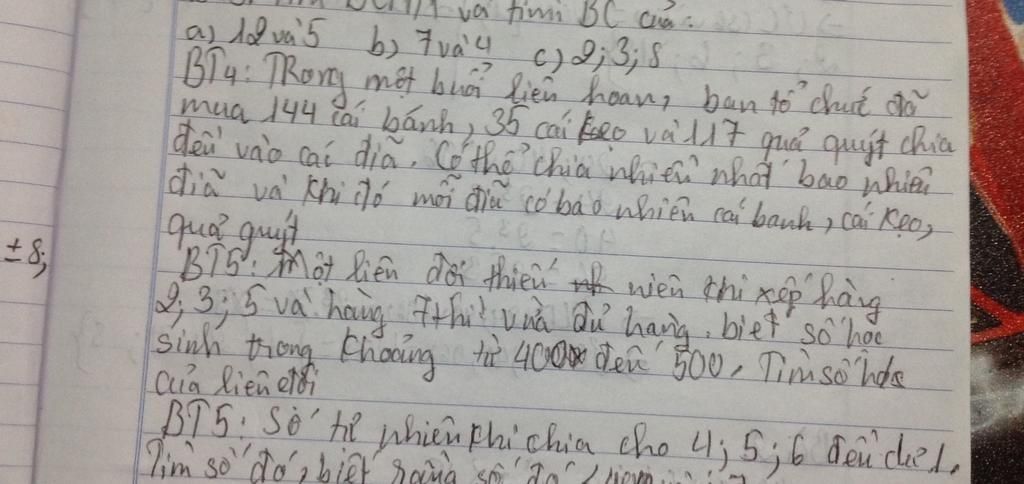 và tìm BC của:
a) 12 và 5 b) 7 và 4 c) 2; 3; 8
BT4: Trong một buổi liên hoan, ban tổ chức đã
mua 144 cái bánh, 35 cái kẹo và 117 quả quýt chia
đều vào cái đĩa. Có thể chia nhiều nhất bao nhiêu
đĩa và khi đó mỗi đĩa có bao nhiên cái banh, cái kẹo,
quả quýt
± 8;
BT5: Một liên đội thiếu niên khi xếp hàng
2; 3; 5 và hàng 7 thì vừa đủ hàng. biết số học
sinh trong khoảng từ 400 đến 500. Tìm số hds
của liên đội
BT5: Số tự nhiên khi chia cho 4; 5; 6 đều dư 1.
Tìm số đó, biết rằng số đó